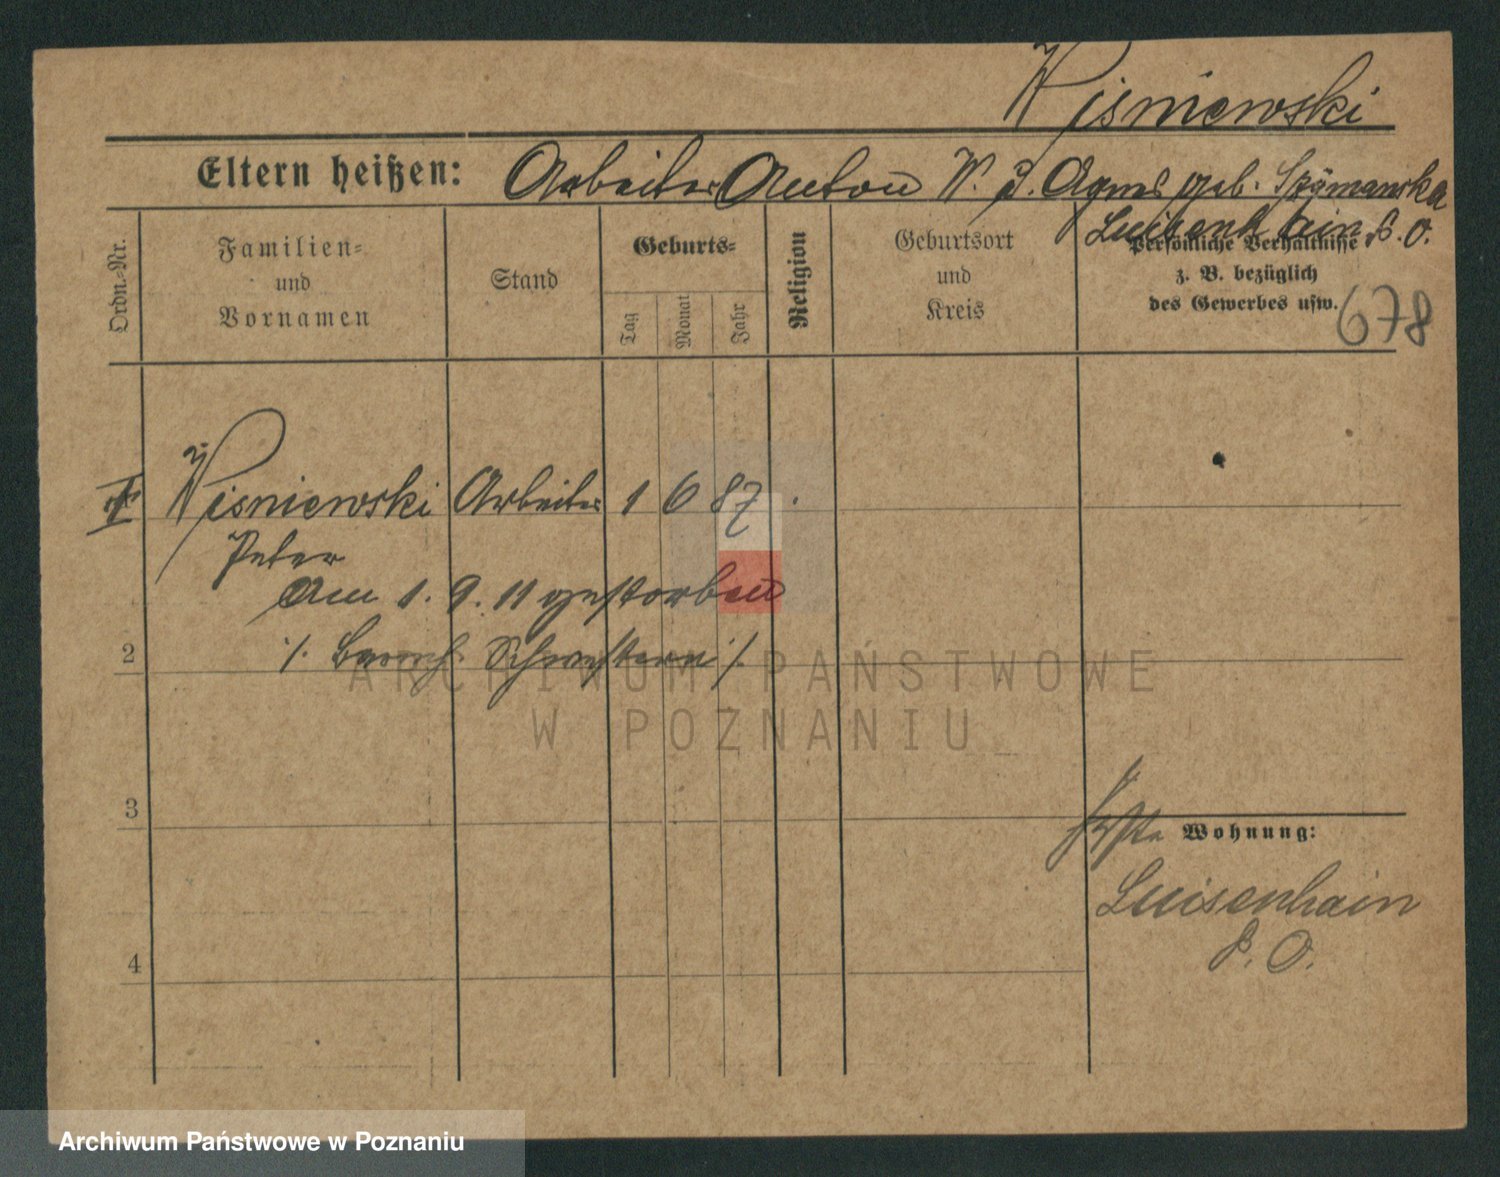 Wisniewski
Eltern heißen: Arbeiter Anton W. u. Agnes geb. Szymanska
Luisenhain P. O.
Ordn.-Nr.
Familien-
und
Vornamen
Stand
Geburts-
Tag
Monat
Jahr
Religion
Geburtsort
und
Kreis
Persönliche Verhältnisse
z. B. bezüglich
des Gewerbes usw.
678
Wisniewski Arbeiter 1 6 87
Peter
Am 1. 9. 11 gestorben
2 ./. Barmh. Schwestern ./.
ARCHIWUM PAŃSTWOWE
W POZNANIU_
3
Wohnung:
Luisenhain
4
P. O.
Archiwum Państwowe w Poznaniu